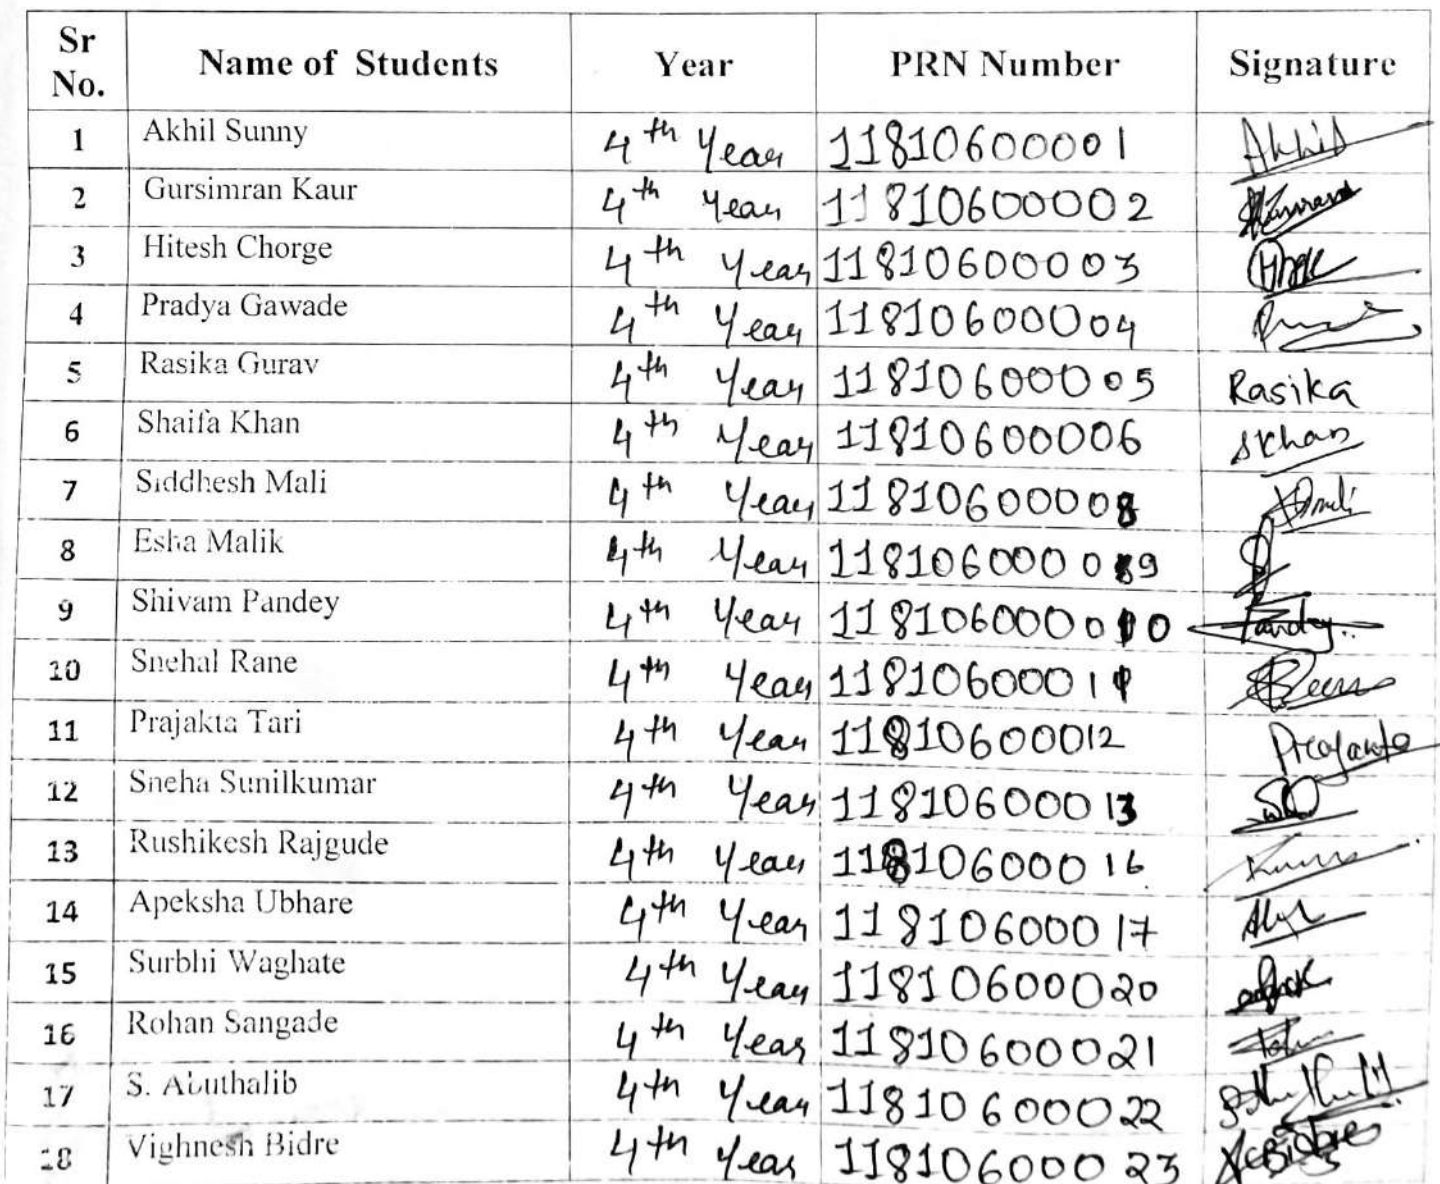 Sr No. Name of Students Year PRN Number Signature
1 Akhil Sunny 4th Year 11810600001 Akhil
2 Gursimran Kaur 4th Year 11810600002
3 Hitesh Chorge 4th Year 11810600003
4 Pradya Gawade 4th Year 11810600004
5 Rasika Gurav 4th Year 11810600005 Rasika
6 Shaifa Khan 4th Year 11810600006 skhan
7 Siddhesh Mali 4th Year 11810600008
8 Esha Malik 4th Year 11810600009
9 Shivam Pandey 4th Year 11810600010 Pandey
10 Snehal Rane 4th Year 11810600011
11 Prajakta Tari 4th Year 11810600012
12 Sneha Sunilkumar 4th Year 11810600013
13 Rushikesh Rajgude 4th Year 11810600016
14 Apeksha Ubhare 4th Year 11810600017
15 Surbhi Waghate 4th Year 11810600020
16 Rohan Sangade 4th Year 11810600021
17 S. Abuthalib 4th Year 11810600022
18 Vighnesh Bidre 4th Year 11810600023